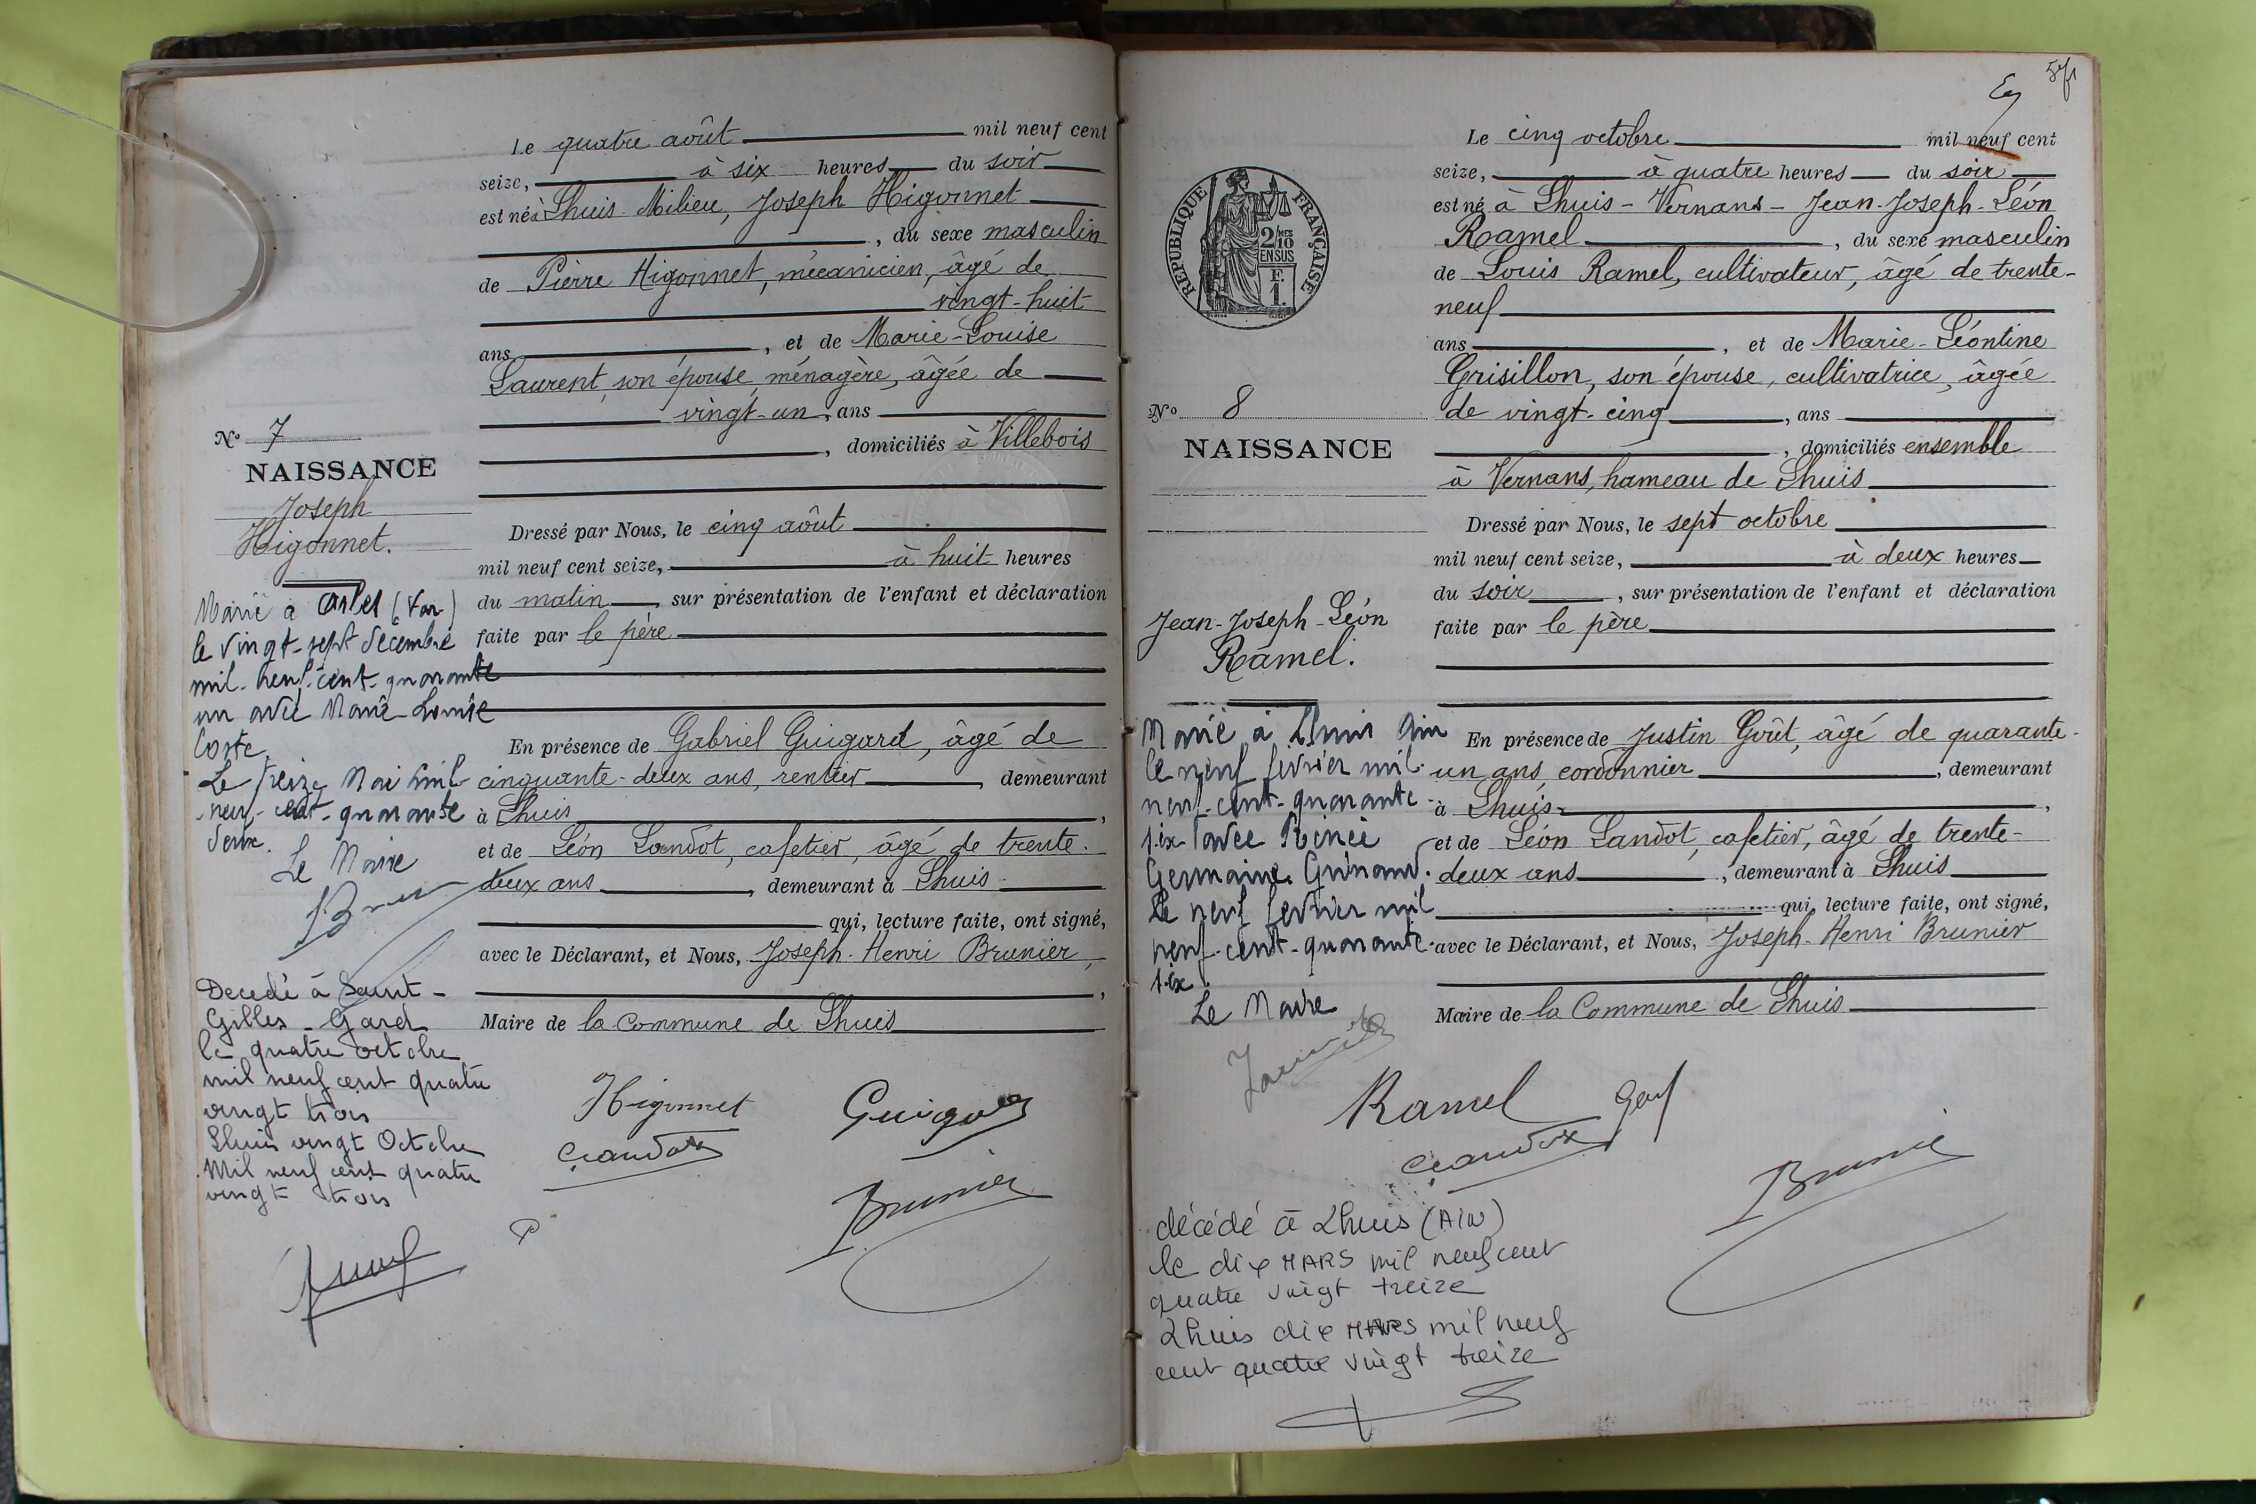 Le quatre août mil neuf cent
seize, à six heures du soir
est né à Lhuis-Milieu, Joseph Higonnet
, du sexe masculin
de Pierre Higonnet, mécanicien, âgé de
vingt-huit
ans, et de Marie-Louise
Laurent, son épouse, ménagère, âgée de
vingt-un, ans
, domiciliés à Villebois
No 7
NAISSANCE
Joseph
Higonnet.
Dressé par Nous, le cinq août
mil neuf cent seize, à huit heures
du matin, sur présentation de l'enfant et déclaration
faite par le père
En présence de Gabriel Guigard, âgé de
cinquante-deux ans, rentier, demeurant
à Lhuis,
et de Léon Landot, cafetier, âgé de trente-
deux ans, demeurant à Lhuis
qui, lecture faite, ont signé,
avec le Déclarant, et Nous, Joseph-Henri Brunier,
,
Maire de la Commune de Lhuis
Marié à (Var)
le vingt-sept décembre
mil-neuf-cent-quarante
un avec Marie-Louise
Coste
Le seize Mai mil
neuf-cent-quarante
deux.
Le Maire
Décédé à Saint-
Gilles-Gard
le quatre octobre
mil neuf cent quatre
vingt trois
Lhuis vingt Octobre
Mil neuf cent quatre
vingt trois
Higonnet
Guigard
Landot
Brunier
Le cinq octobre mil neuf cent
seize, à quatre heures du soir
est né à Lhuis-Vernans-Jean-Joseph-Léon
Ramel, du sexe masculin
de Louis Ramel, cultivateur, âgé de trente-
neuf
ans, et de Marie-Léontine
Grisillon, son épouse, cultivatrice, âgée
de vingt-cinq, ans
, domiciliés ensemble
à Vernans, hameau de Lhuis
RÉPUBLIQUE FRANÇAISE
2/10 EN SUS
F. 1.
No 8
NAISSANCE
Jean-Joseph-Léon
Ramel.
Dressé par Nous, le sept octobre
mil neuf cent seize, à deux heures
du soir, sur présentation de l'enfant et déclaration
faite par le père
En présence de Justin Goût, âgé de quarante-
un ans, cordonnier, demeurant
à Lhuis,
et de Léon Landot, cafetier, âgé de trente-
deux ans, demeurant à Lhuis
qui, lecture faite, ont signé,
avec le Déclarant, et Nous, Joseph-Henri Brunier
Maire de la Commune de Lhuis
Marié à Lhuis Ain
le neuf février mil-
neuf-cent-quarante-
six avec Renée
Germaine
Le neuf février mil
neuf-cent-quarante-
six.
Le Maire
Ramel
Landot
Brunier
décédé à Lhuis (AIN)
le dix MARS mil neuf cent
quatre vingt treize
Lhuis dix MARS mil neuf
cent quatre vingt treize